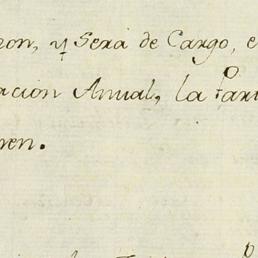 ron, y Será de Cargo, e
ación Anual, la Par
ren.